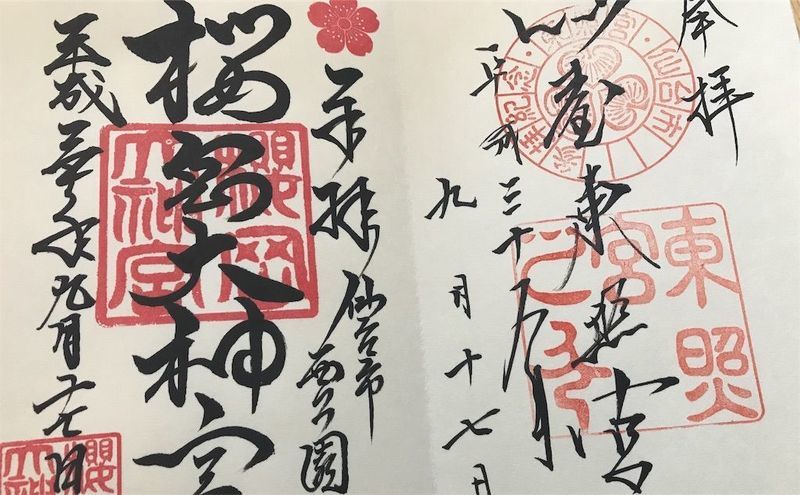 奉拝
仙臺東照宮
平成三十年
九月十七日
東照
宮
奉拝 仙台市西公園
桜岡大神宮
櫻岡
大神宮
平成三十年九月十七日